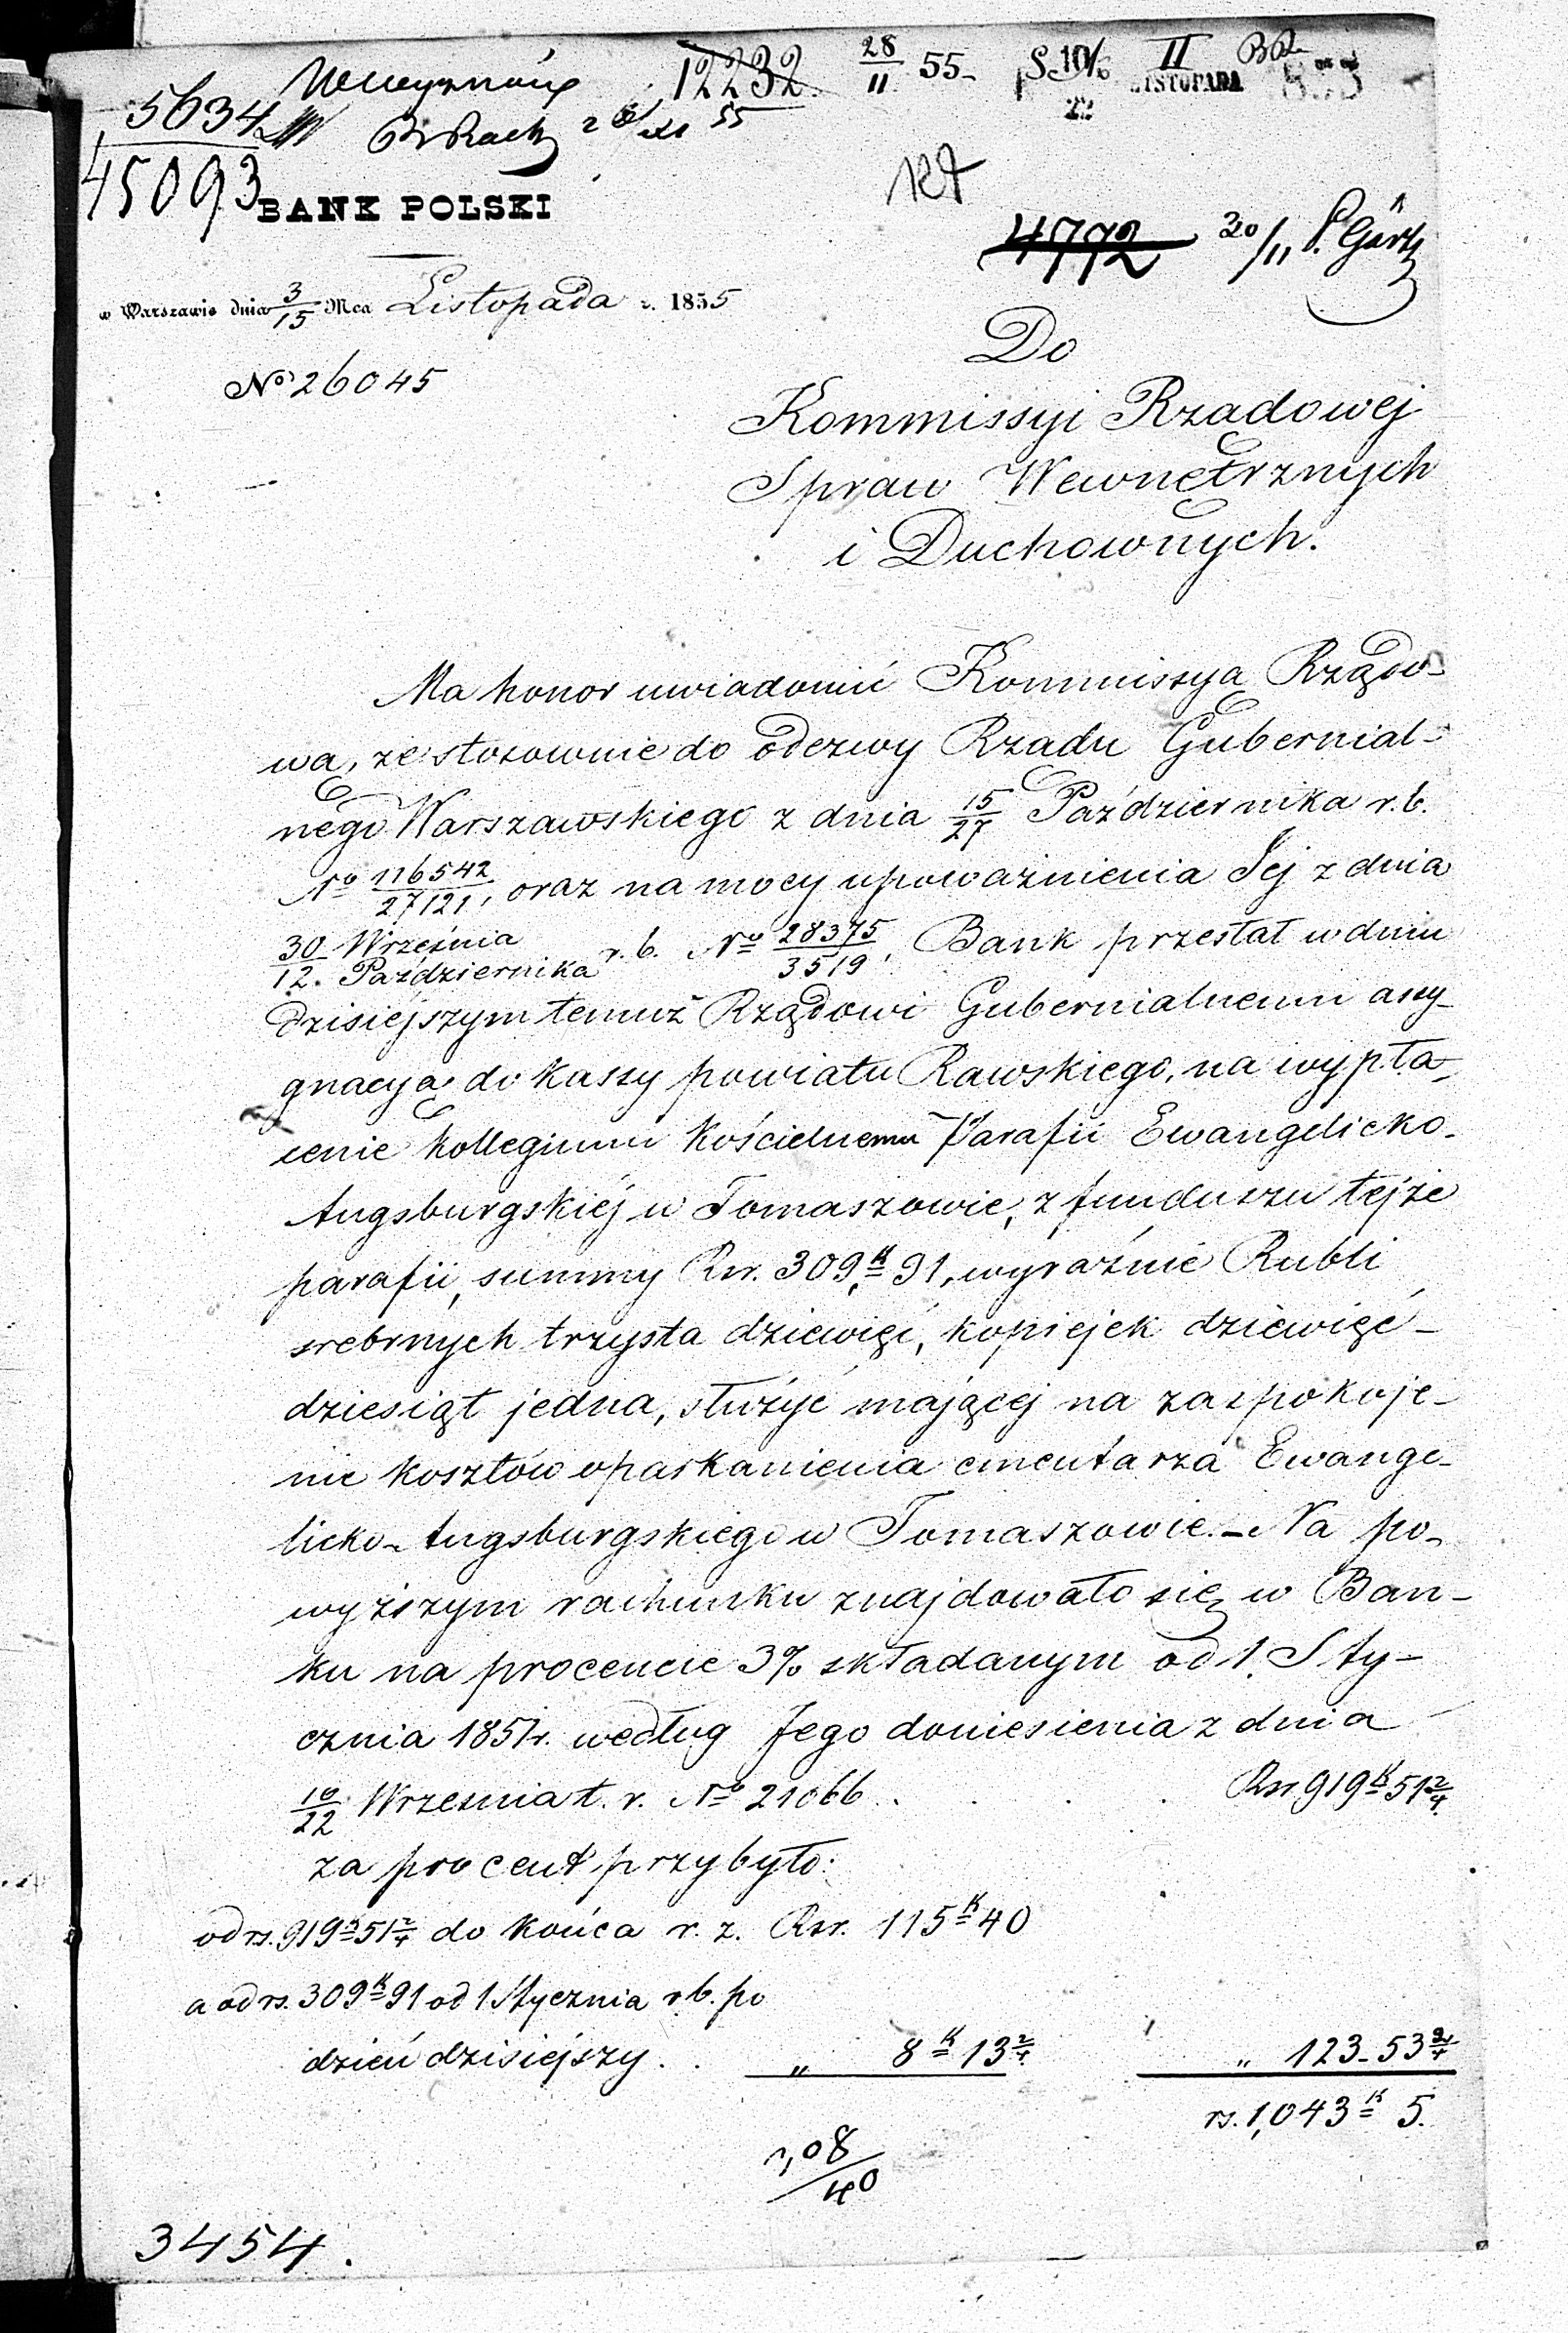 12232 28/11 55
5634
45093
BANK POLSKI
4772 20/11
w Warszawie dnia 3/15 Mca Listopada r. 1855
Do
No 26045
Kommissyi Rządowej
Spraw Wewnętrznych
i Duchownych.
Ma honor uwiadomić Kommissyą Rządo-
wą, że stosownie do odezwy Rządu Gubernial-
nego Warszawskiego z dnia 15/27 Października r. b.
No 116542/27121, oraz na mocy upoważnienia Jej z dnia
30 Września/12. Października r. b. No 28375/3519, Bank przesłał w dniu
dzisiejszym temuż Rządowi Gubernialnemu assy-
gnacyą do kassy powiatu Rawskiego, na wypła-
cenie kollegium Kościelnemu Parafii Ewangelicko-
Augsburgskiéj w Tomaszowie, z funduszu tejże
parafii, summy Rsr. 309, K 91, wyraźnie Rubli
srebrnych trzysta dziewięć, kopiejek dziewięć-
dziesiąt jedna, służyć mającej na zaspokoje-
nie kosztów oparkanienia cmentarza Ewange-
licko-Augsburgskiego w Tomaszowie. – Na po-
wyższym rachunku znajdowało się w Ban-
ku na procencie 3% składanym od 1. Sty-
cznia 1851 r. według Jego doniesienia z dnia
10/22 Września t. r. No 21066 . . . Rsr. 919 K 51 2/4
za procent przybyło:
od rs. 919 K 51 2/4 do końca r. z. Rsr. 115 K 40
a od rs. 309 K 91 od 1 Stycznia r. b. po
dzień dzisiejszy . . " 8 K 13 2/4 " 123 - 53 2/4
rs. 1,043 K 5.
3454.